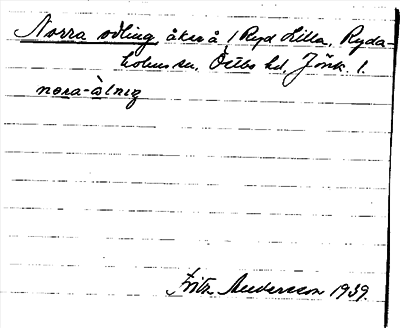 Norra odling åker å 1 Ryd Lilla, Ryda-
holms sn, Östbo hd, Jönk. l.
nɵra-àlnıg
Fritz Andersson 1939.